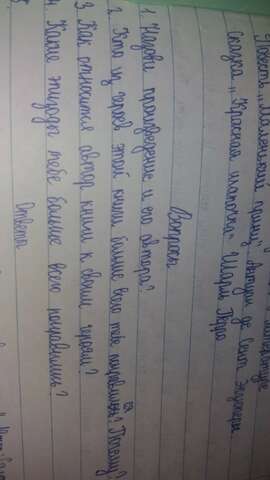 Повесть „Маленький принц" Антуан де Сент Экзюпери.
Сказка „Красная шапочка" Шарль Перро
Вопросы
1. Назови произведение и его автора?
2. Кто из героев этой книги больше всего тебе понравился? Почему?
3. Как относится автор книги к своим героям?
4. Какие эпизоды тебе больше всего понравились?
Ответы